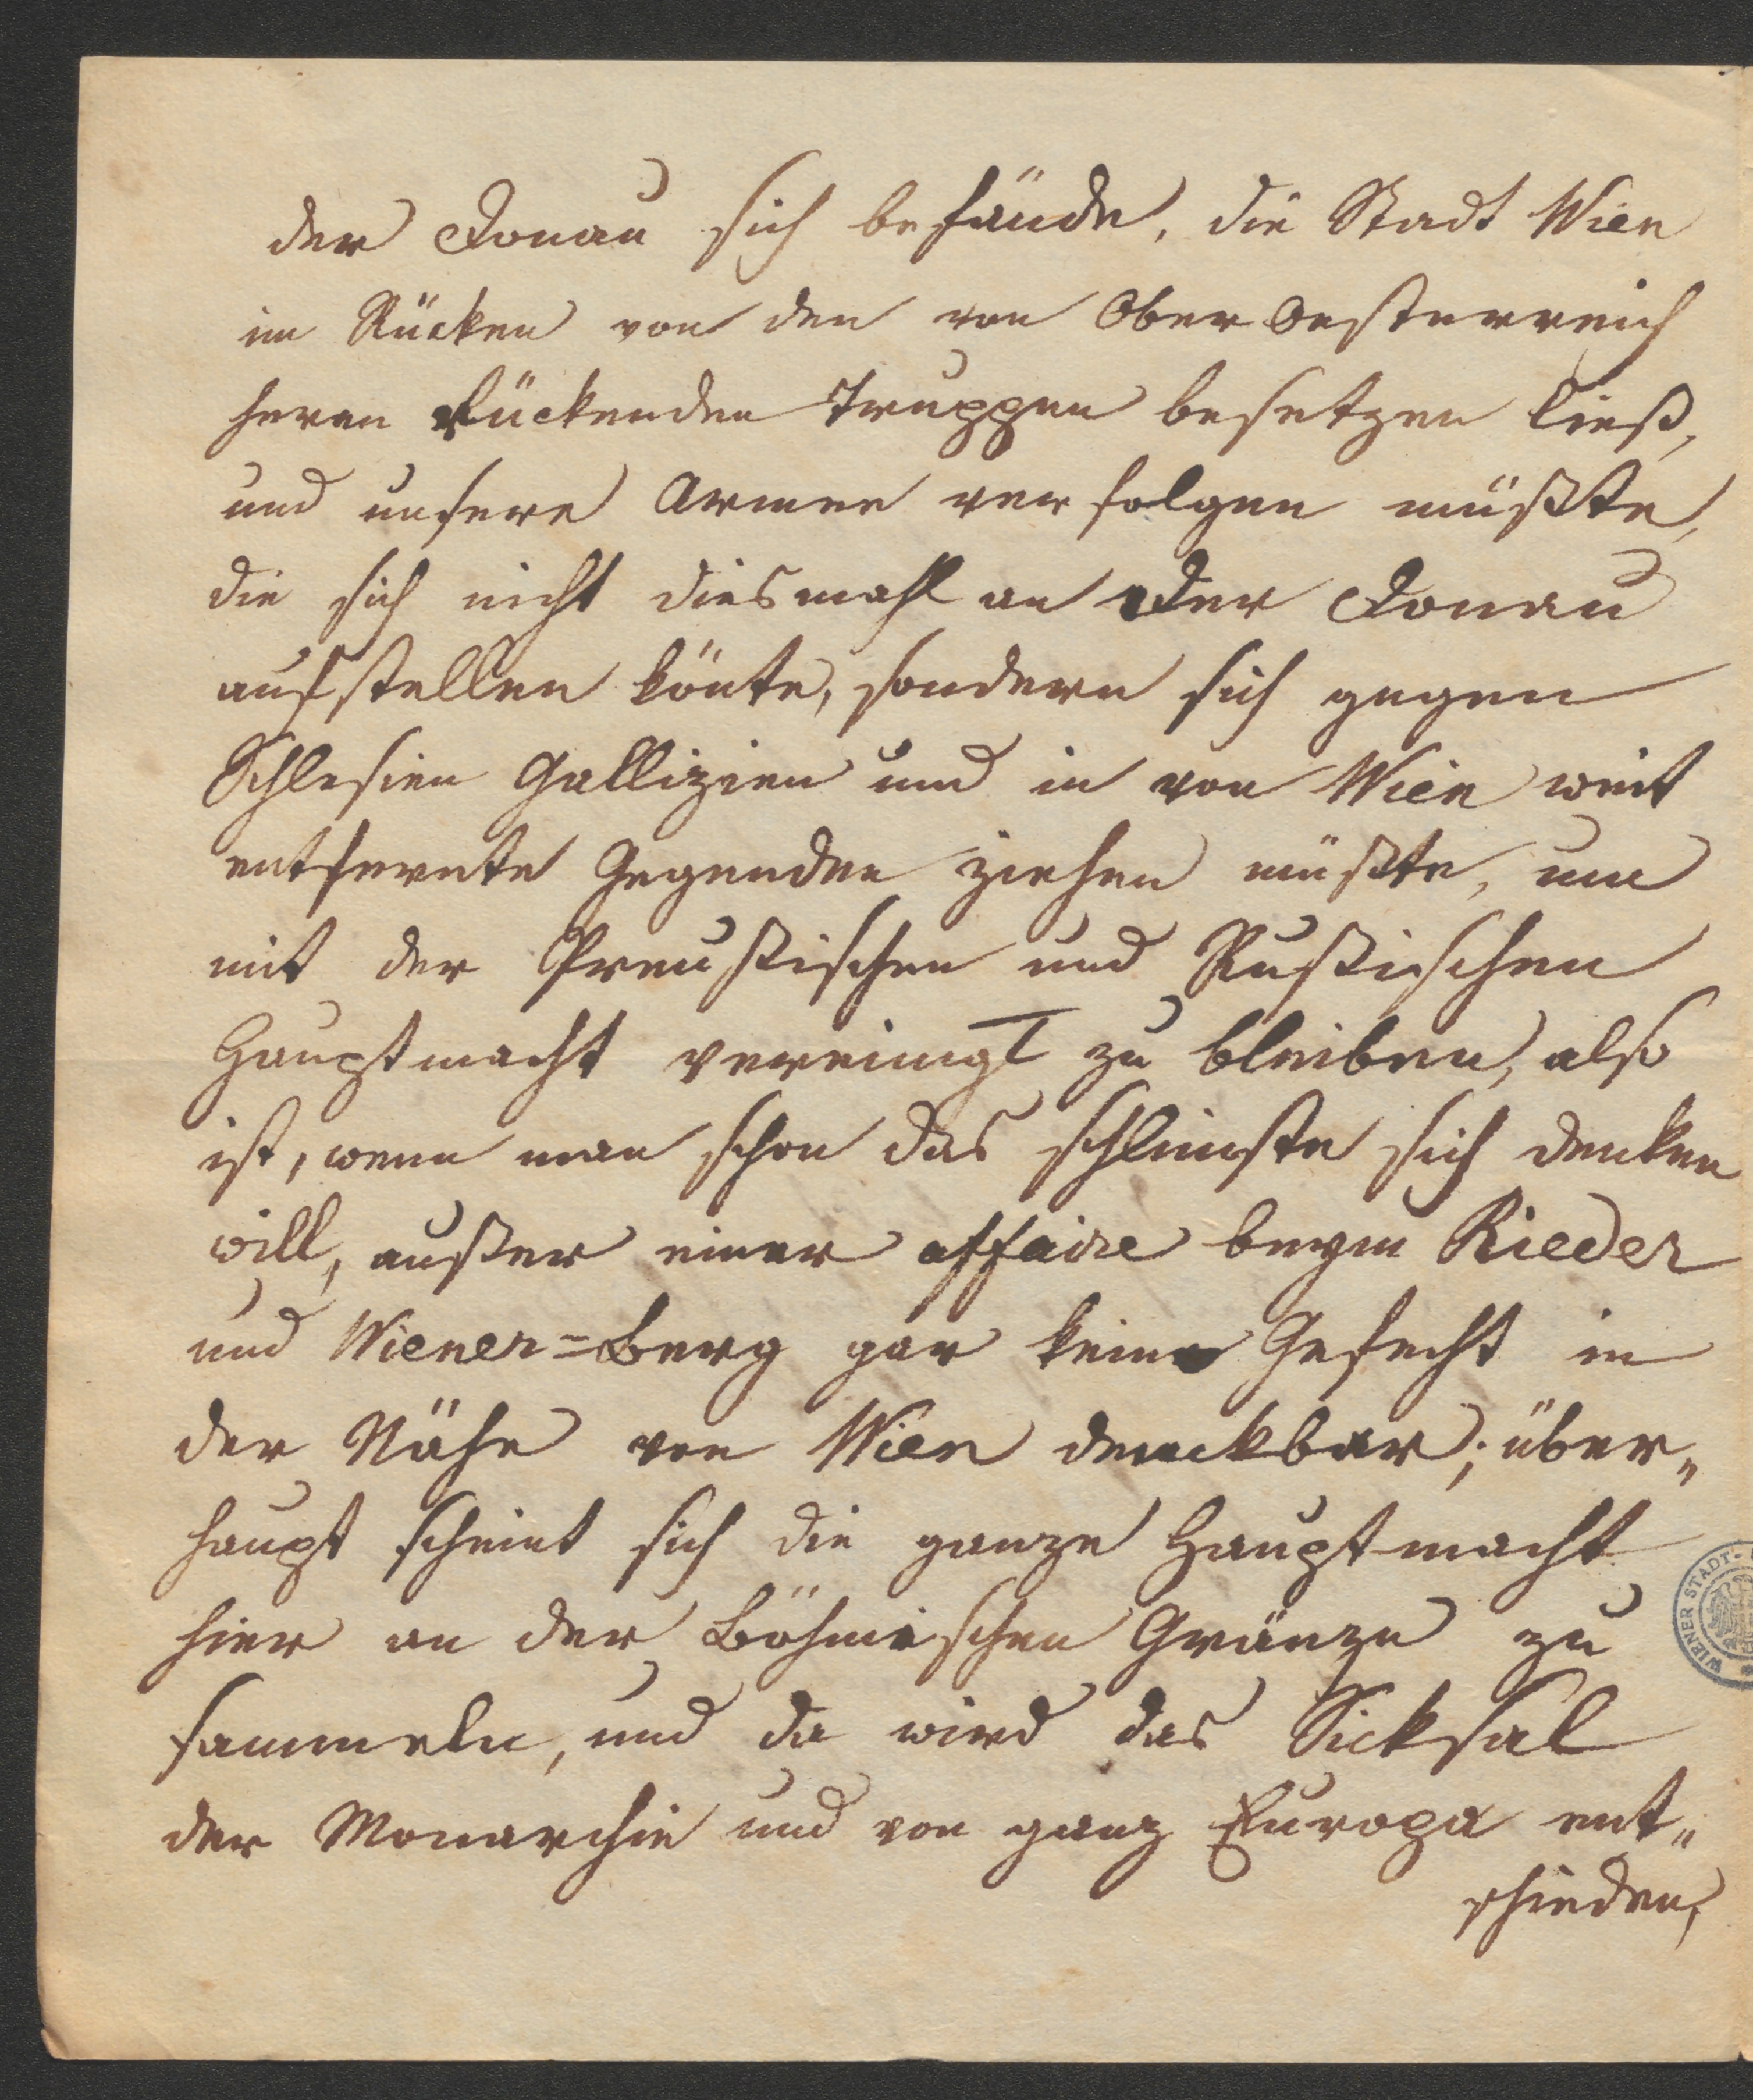 der Donau sich befände, die Stadt Wien
im Rücken von den von Ober Oesterreich
heran rückenden Truppen besetzen ließ,
und unsere Armee verfolgen müßte,
die sich nicht diesmahl an der Donau
aufstellen könte, sondern sich gegen
Schlesien Gallizien und in von Wien weit
entfernte Gegenden ziehen müßte, um
mit der Preußischen und Rußischen
Hauptmacht vereinigt zu bleiben, also
ist, wenn man schon das schlimste sich denken
will, außer einer affaire beym Rieder
und Wiener=Berg gar kein Gefecht in
der Nähe von Wien denckbar; über„
haupt scheint sich die ganze Hauptmacht
hier an der Böhmischen Gränze zu
sammeln, und da wird das Sicksal
der Monarchie und von ganz Europa ent„
schieden,
WIENER STADT-